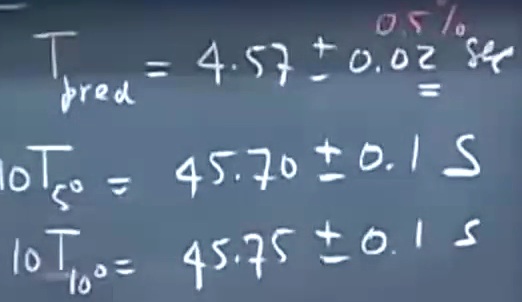 0.5%
T pred = 4.57 ± 0.02 sec
10T5° = 45.70 ± 0.1 S
10T10° = 45.75 ± 0.1 s